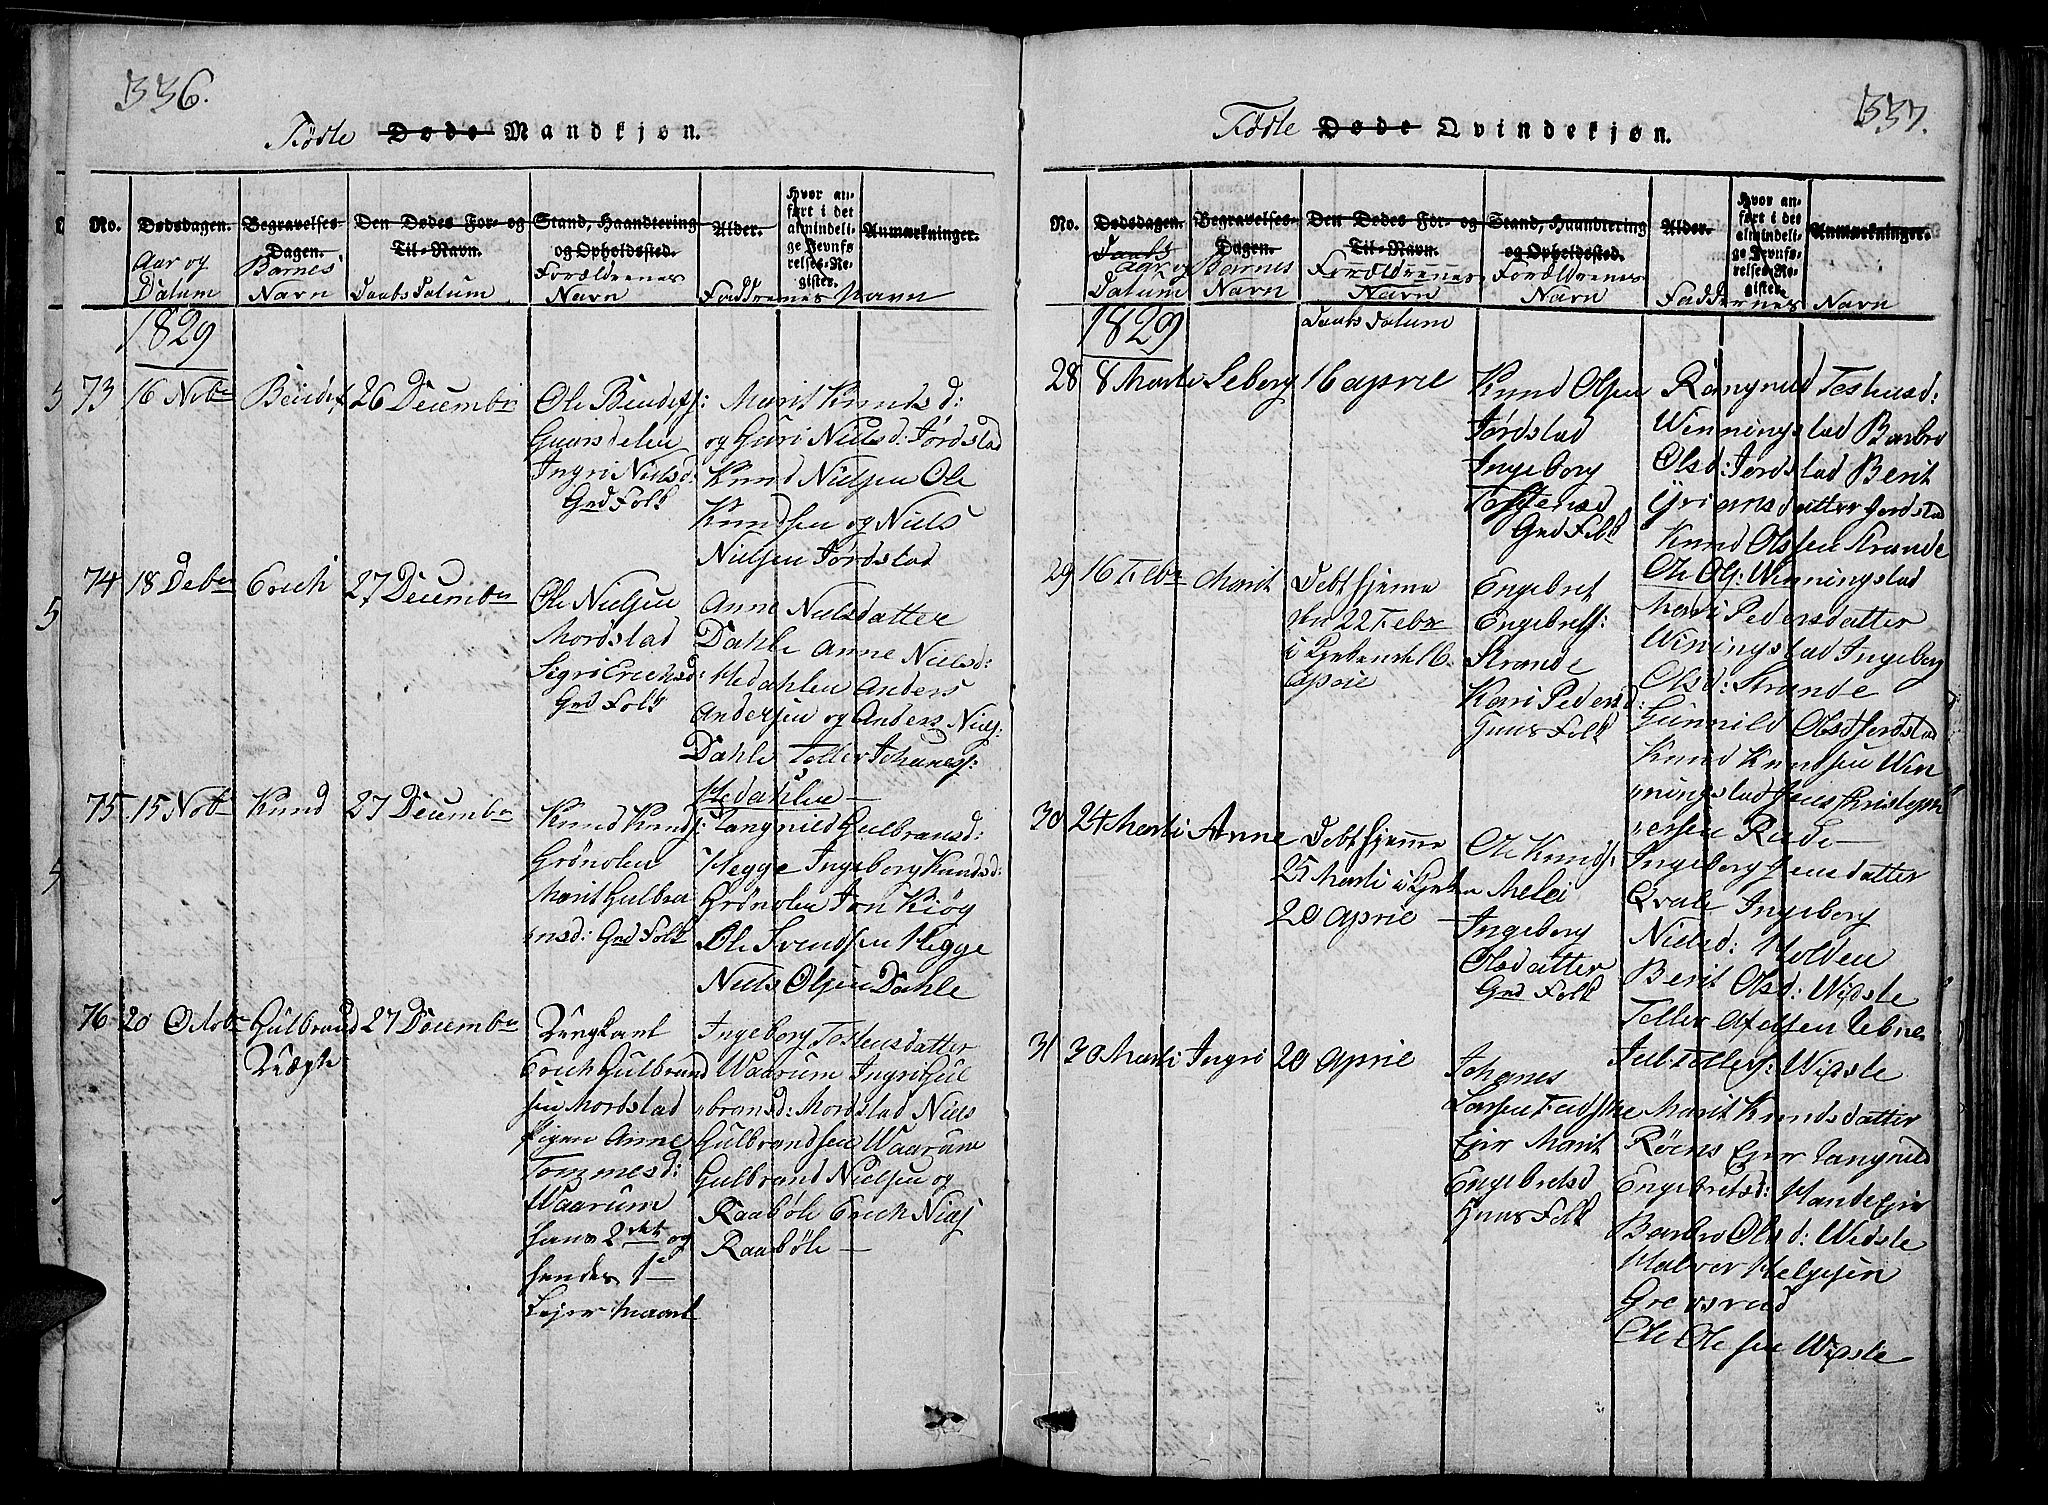 336.
Fødte Døde Mandkjøn.
No.
Dødsdagen.
Aar og
Datum
Begravelses-
Dagen.
Barnes
Navn
Den Dødes For- og
Til-Navn.
Daabs Datum
Stand, Haandtering
og Opholdssted.
Forældrenes
Navn
Alder.
Hvor an-
ført i det
almindeli-
ge Jevnfø-
relses-Re-
gister.
Anmærkninger.
Faddrenes Navn
1829
73
16 Nobr
26 December
Ole
Ingri Nielsd:
Gmd Folk
Marit Knudsd:
og Guri Nielsd: Jørdstad
Knud Nielsen Ole
Knudsen og Niels
Nielsen Jørdstad
74
18 Debr
Erich
27 December
Ole Nielsen
Mordstad
Sigri Erichsd:
Gmd Folk
Anne Nielsdatter
Dahle Anne Nielsd:
Medahlen Anders
Andersen og Anders Niels:
Dahle Toller Johaness:
Medahlen
75
15 Nobr
Knud
27 December
Knud Knuds:
Grønolen
Marit Gulbra
nsd: Gmd Folk
Rangnild Gulbransd:
Hegge Ingeborg Knudsd:
Grønolen Jon Kiøg
Ole Svendsen Hegge
Niels Olsen Dahle
76
20 Octobr
Gulbrand
Uægte
27 December
Ungkarl
Erich Gulbrand
sen Mordstad
Pigen Anne
Waarum
hans 2det og
hendes 1te
Lejermaal
Ingeborg Tostensdatter
Waarum Ingri Gul
bransd: Mordstad Niels
Gulbrandsen Waarum
Gulbrand Nielsen og
Raabøle Erich Niels
Raabøle
337.
Fødte Døde Qvindekjøn.
No.
Dødsdagen.
Daabs
Aar og
Datum
Begravelses-
Dagen.
Barnes
Navn
Den Dødes For- og
Til-Navn.
Forældrenes
Navn
Daabs Datum
Stand, Haandtering
og Opholdssted.
Forældrenes
Navn
Alder.
Hvor an-
ført i det
almindeli-
ge Jevnfø-
relses-Re-
gister.
Anmærkninger.
Faddernes Navn
1829
28
8 Marti
Seberg
16 April
Knud Olsen
Jørdstad
Ingeborg
Tostensd
Gmd Folk
Rangnild Tostensd:
Winningstad Barbro
Olsd: Jordstad Berit
Jordstad
Knud Olssen Strande
Ole Ols: Winningstad
29
16 Febr
Marit
Døbt hjeme
den 22 Febr
i Kirken d 16
April
Engebret
Engebrets:
Strande
Kari Pedersd:
Huus Folk
Mari Pedersdatter
Winingstad Ingeborg
Olsd: Strande
Gunnild Olsd Jordstad
Knud Knudsen Win
ningstad Jens Christoph
ersen Rude
30
24 Marti
Anne
Døbt hjemme
25 Marti i Kirken
20 April
Ole Knuds:
Melei
Ingeborg
Olsdatter
Gmd Folk
Ingeborg Jensdatter
Qvale Ingeborg
Nielsd: Holden
Berit Olsd: Widste
Toller Axelsen Uebne
Jul: Tollefs: Wigste
31
30 Marti
Ingri
20 April
Johanes
Larsen
Ejer Marit
Engebretsd
Huus Folk
Marit Knudsdatter
Røens Ejer Rangnild
Engebretsd: Hande Ejer
Barbro Olsd: Widste
Halvor Helgesen
Ole Olesen Wigste